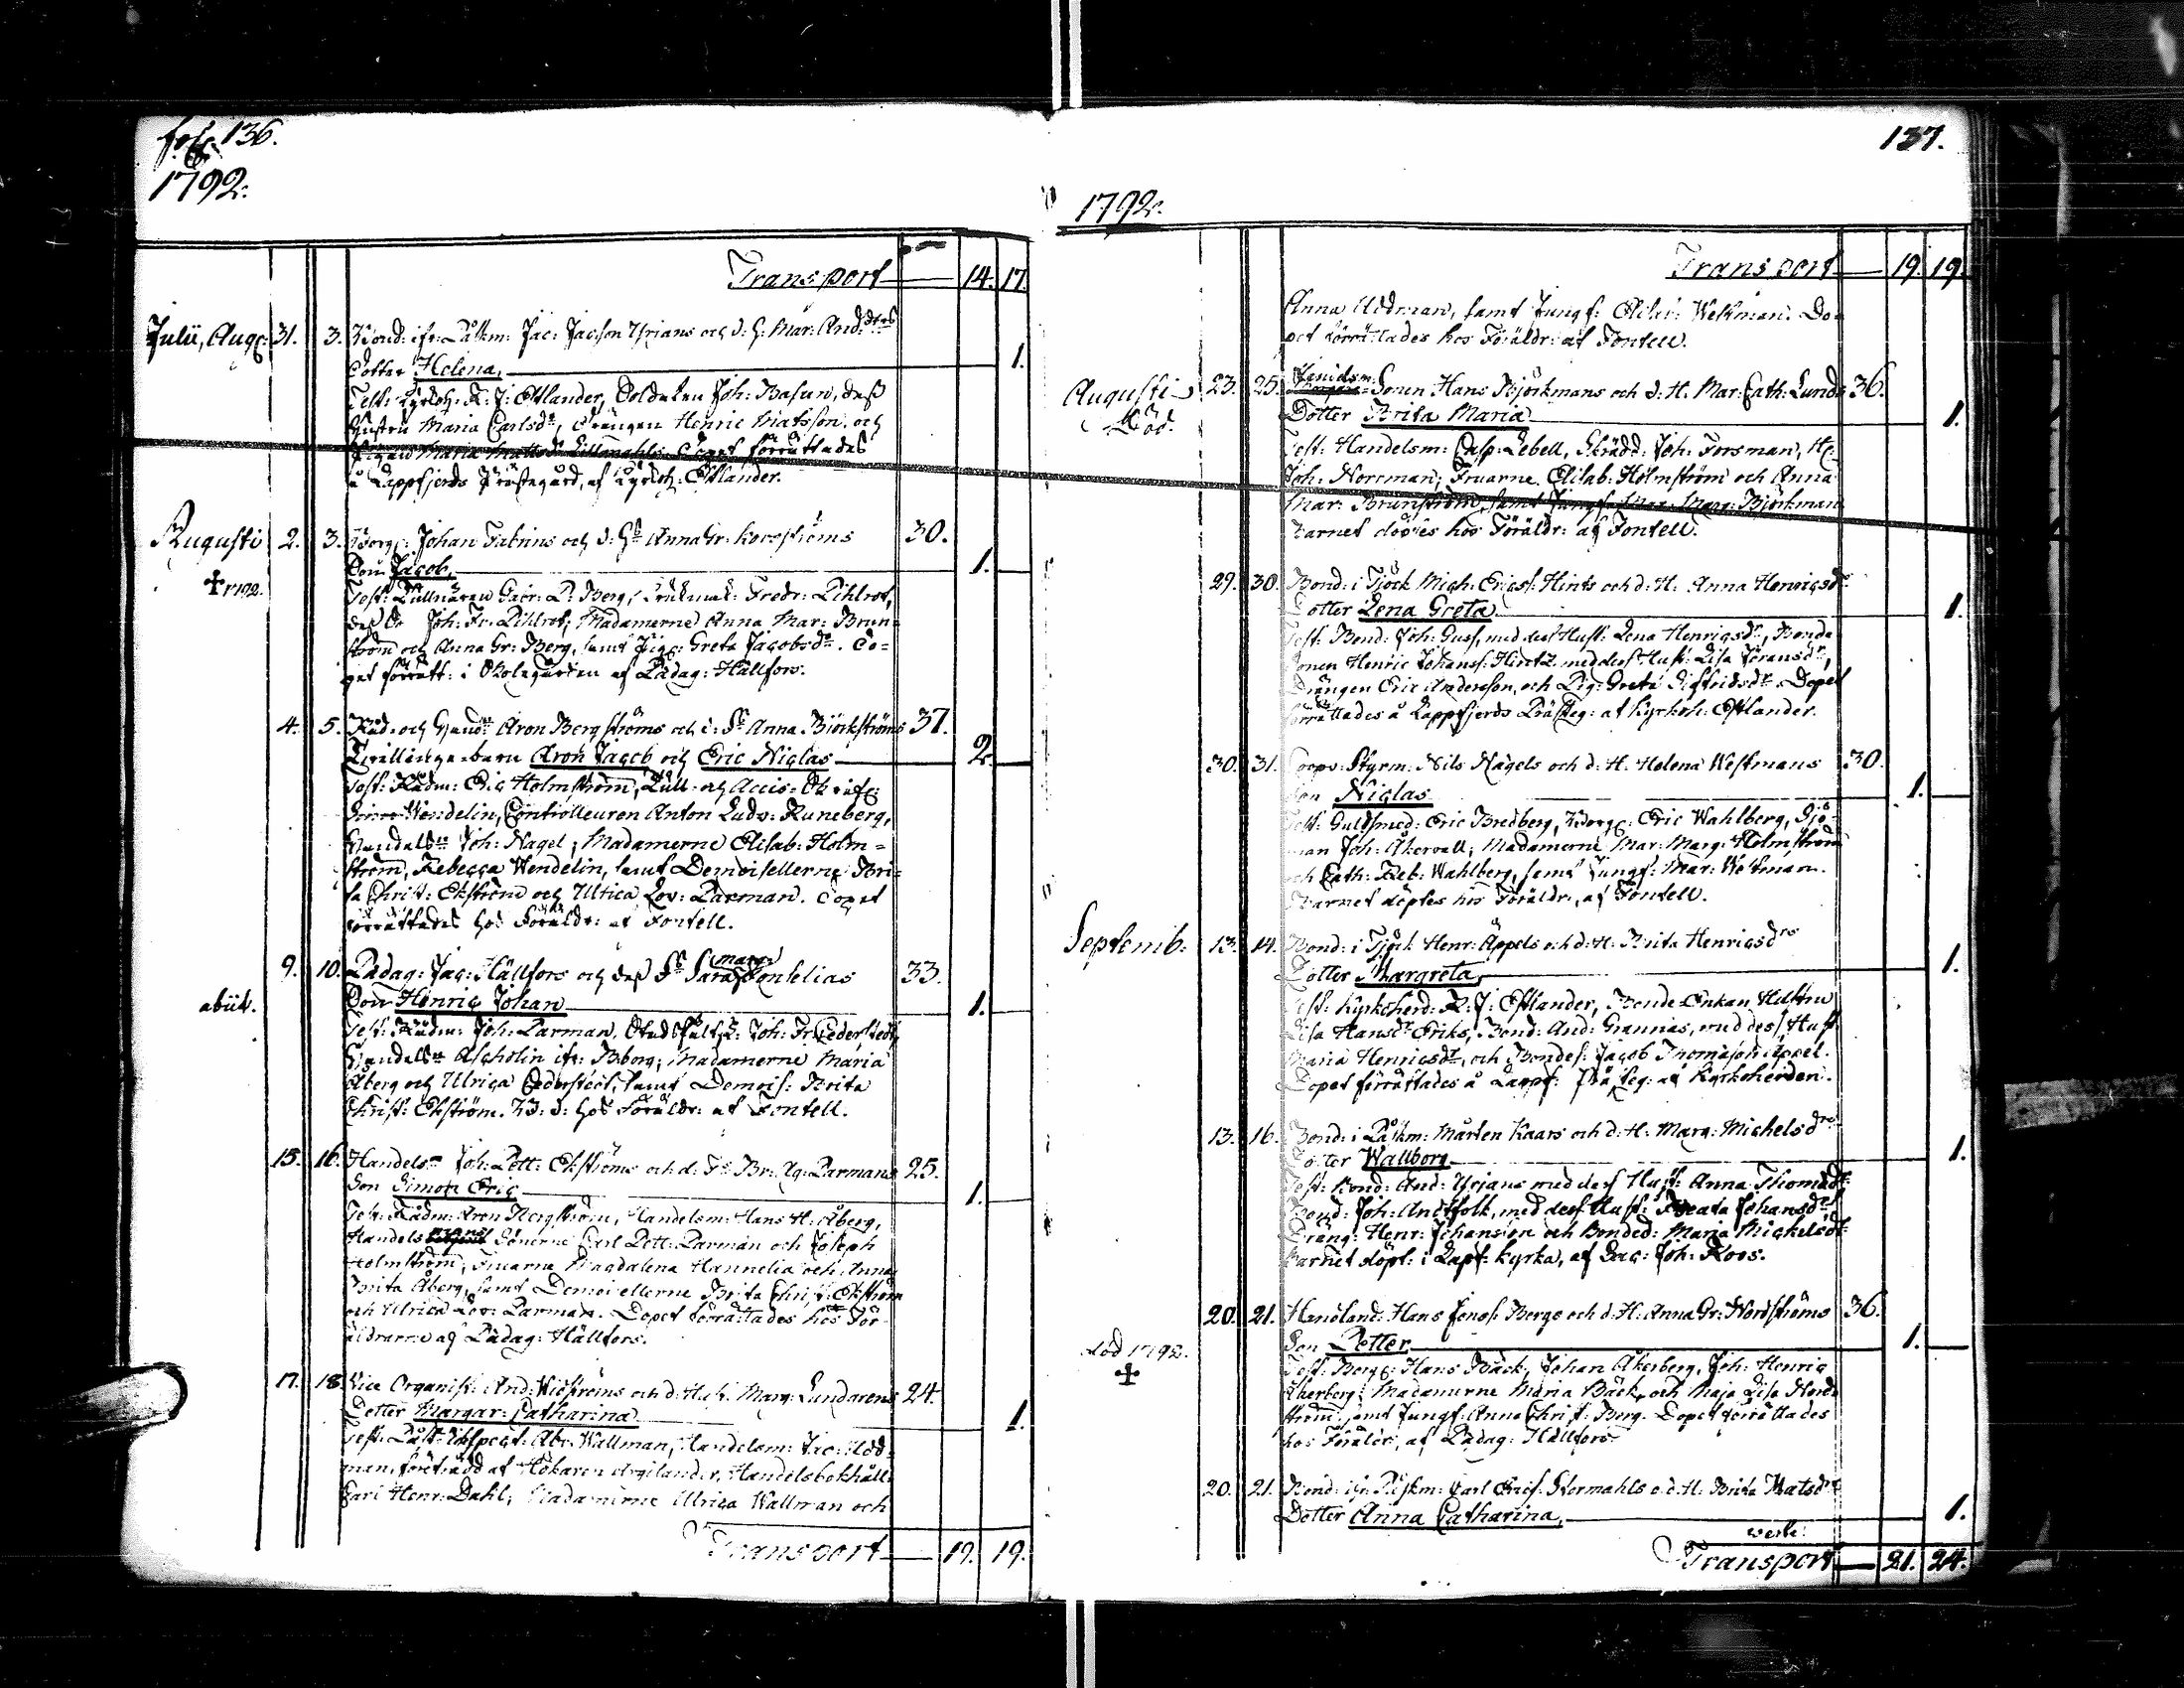 fol. 136.
1792.
Transport 14. 17.
Julii, Aug: 31. 3. Bond: ifr: Påskm: Jac: Jacsson Yrians och d: H: Mar: And:dtrs
Dotter Helena, 1.
Test: Kyrkoh: R: J: Estlander, Soldaten Joh: Basun, dess
hustru Maria Carlsdr, Drängen Henric Matsson och
Pigan Maria Mattsdr Dopet förrättades
å Lappfjerds Prästegård, af Kyrkoh: Estlander.
Augusti 2. 3. Borg: Johan Fabrins och d: Hu Anna Gr: Koroströms 30.
Son Jacob, 1.
✝ 1792.
Test: Tullnären Gabr: L: Berg, Fredr: Pihlrot,
dess Joh: Fr: Pihlrot, Madamerne Anna Mar: Brun-
ström och Anna Gr: Berg, samt Pig: Greta Jacobsdr. Do-
pet förrätt: i Skolegården af Pädag: Hällfors.
4. 5. Råd- och Hand: Aron Bergströms och d: Fr Anna Björkströms 37.
Tvillingebarn Aron Jacob och Eric Niclas 2.
Test: Rådm: Eric Holmström, Tull- och Accis-
Wendelin, Controlleuren Anton Ludv: Runeberg,
Handelsm Joh: Nagel, Madamerne Elisab: Holm-
ström, Rebecca Wendelin, samt Demoisellerne Bri-
ta Christ: Ekström och Ulrica Lov: Parman. Dopet
förrättades hos Föräldr: af Fontell.
9. 10. Pädag: Jac: Hällfors och dess Fr Sara Marg: 33.
abiit. Son Henric Johan 1.
Test: Rådm: Joh: Parman, Stads Joh: Fr: Cederstedt,
Handelsm Ascholin ifr: Borg; Madamerne Maria
Åberg och Ulrica Cederstedt, samt Demois: Brita
Christ: Ekström. B: d: hos Föräldr: af Fontell.
15. 16. Handelsm Joh: Pett: Ekströms och d: Fr Br: Ag: Parmans 25.
Son Simon Eric 1.
Test: Rådm: Aron Bergström, Handelsm: Hans H: Åberg,
Handelsmans Sönerne Carl Pett: Parman och Joseph
Holmström, Fruarne Magdalena Hannelia och Anna
Brita Åberg, samt Demoisellerne Brita Christ: Ekström
och Ulrica Lov: Parman. Dopet förrättades hos För-
äldrarne af Pädag: Hällfors.
17. 18. Vice Organist: And: Widströms och d: Hust: Marg: Lundgrens 24.
Dotter Margar: Catharina 1.
Test: Påst-Inspect: Abr: Wallman, Handelsm: Jac: Nod-
man, företrädd af Hökaren Argilander, Handelsbokhåll:
Carl Henr: Dahl; Madamerne Ulrica Wallman och
Transport 19. 19.
137.
1792.
Transport 19. 19.
Anna Nodman, samt Jungf: Elisab: Wekman. Do-
pet förrättades hos Föräldr: af Fontell.
Augusti 23. 25. Sonen Hans Björkmans och d: H. Mar: Cath: Lunds 36.
Död. Dotter Brita Maria 1.
Test: Handelsm: Casp: Lebell, Skrädd: Joh: Forsman, H:
Joh: Norrman; Fruarne Elisab: Holmström och Anna
Mar: Brunström, samt Jungf: Mar: Marg: Björkman
Barnet döptes hos Föräldr: af Fontell.
29. 30. Bond: i Tjöck Mich: Ericss: Hints och d: H: Anna Henricsdr
Dotter Lena Greta 1.
Test: Bond: Joh: Guss, med dess Hust: Lena Henricsdr, Bonde
Sonen Henric Johanss: Hintz med dess Hust: Lisa Göransdr,
Drängen Eric Andersson, och Pig: Greta Sigfridsdr. Dopet
förrättades å Lappfjerds Prästeg: af Kyrkoh: Estlander.
30. 31. Coopv: Styrm: Nils Nagels och d: H. Helena Westmans 30.
Son Niclas 1.
Test: Guldsmed: Eric Bredberg, Borg: Eric Wahlberg, Sjö-
man Joh: Åkervall; Madamerne Mar: Marg: Holmström
och Cath: Reb: Wahlberg, samt Jungf: Mar: Westman.
Barnet döptes hos Föräldr: af Fontell.
Septemb: 13. 14. Bond: i Tjöck Henr: Äppels och d: H: Brita Henricsdrs
Dotter Margreta, 1.
Test: Kyrkoherd: R: J: Estlander, Bonde Enkan Hustru
Lisa Hansdr Eriks, Bond: And: Grannas, med dess Hust
Maria Henricsdr, och Bondes: Jacob Thomasson Äppel.
Dopet förrättades å Lappf: Prästeg: af Kyrkoherden.
13. 16. Bond: i Påskm: Mårten Kaars och d: H: Marg: Michelsdrs
Dotter Wallborg 1.
Test: Bond: And: Yrjans med dess Hust: Anna Thomasdr
Bond: Joh: Andtfolk, med dess Hust: Beata Johansdr,
Dräng: Henr: Johansson och Bonded: Maria Michelsdr
Barnet döpt: i Lapf: Kyrka, af Sac: Joh: Roos.
20. 21. Handland: Hans Jons: Bergs och d: H: Anna Gr: Nordströms 36.
Son Petter 1.
död 1792.
✝
Test: Borg: Hans Bäck, Johan Åkerberg, Joh: Henric
Åkerberg; Madamerne Maria Bäck, och Maja Lisa Nord-
ström, samt Jungf: Anna Christ: Berg. Dopet förrättades
hos Föräldr: af Pädag: Hällfors.
20. 21. Bond: ifr: Påskm: Carl Erics: Stormahls o: d: H: Brita Matsdr
Dotter Anna Catharina, 1.
verte!
Transport 21. 24.